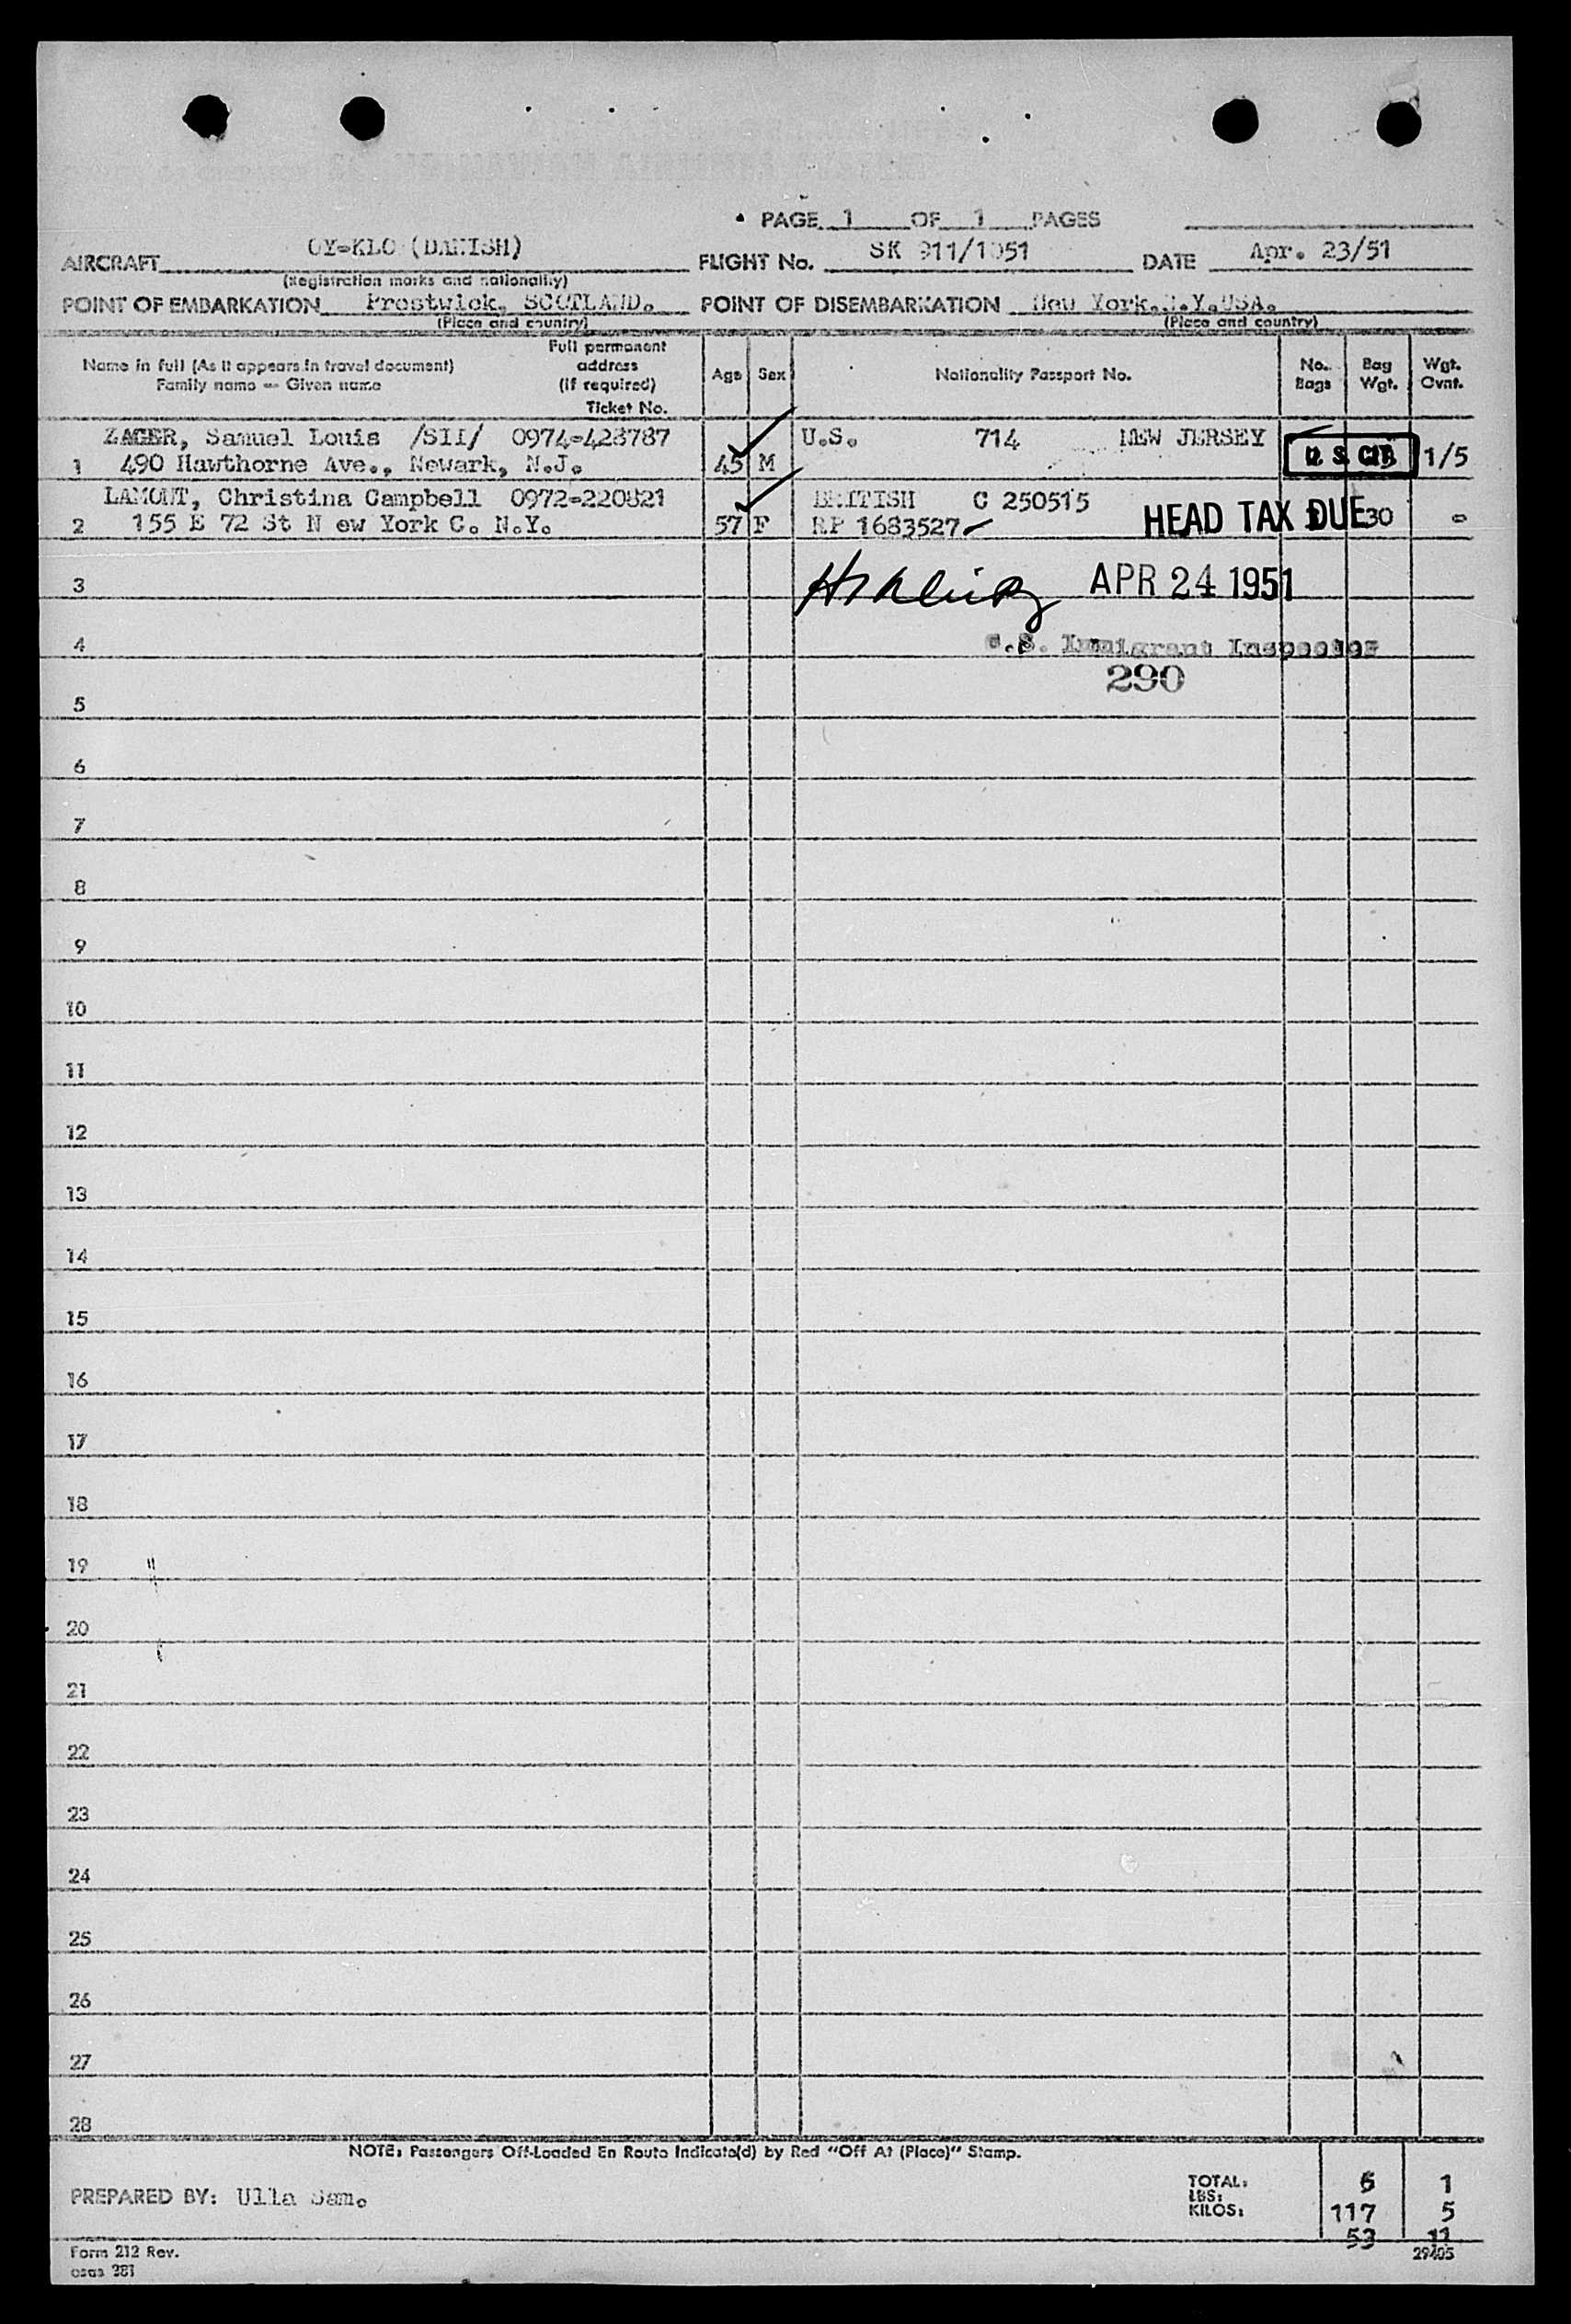 PAGE 1 OF 1 PAGES
AIRCRAFT OY-KLO (DANISH) FLIGHT No. SK 911/1051 DATE Apr. 23/51
(Registration marks and nationality)
POINT OF EMBARKATION Prestwick, SCOTLAND. POINT OF DISEMBARKATION New York.N.Y.USA.
(Place and country) (Place and country)
Name in full (As it appears in travel document) Family name — Given name
Full permanent address (If required) Ticket No.
Age Sex Nationality Passport No. No. Bags Bag Wgt. Wgt. Ovnt.
ZAGER, Samuel Louis /SII/ 0974-428787 U.S. 714 NEW JERSEY
1 490 Hawthorne Ave., Newark, N.J. 45 M U S CIT 1/5
LAMONT, Christina Campbell 0972-220821 BRITISH C 250515
2 155 E 72 St N ew York C. N.Y. 57 F RP 1683527 HEAD TAX DUE 30 -
3 APR 24 1951
4 U.S. Immigrant Inspector
290
5
6
7
8
9
10
11
12
13
14
15
16
17
18
19
20
21
22
23
24
25
26
27
28
NOTE: Passengers Off-Loaded En Route Indicate(d) by Red "Off At (Place)" Stamp.
TOTAL: 6 1
PREPARED BY: Ulla Sam.
LBS:
KILOS: 117 5
53 11
Form 212 Rev. 29405
osas 281